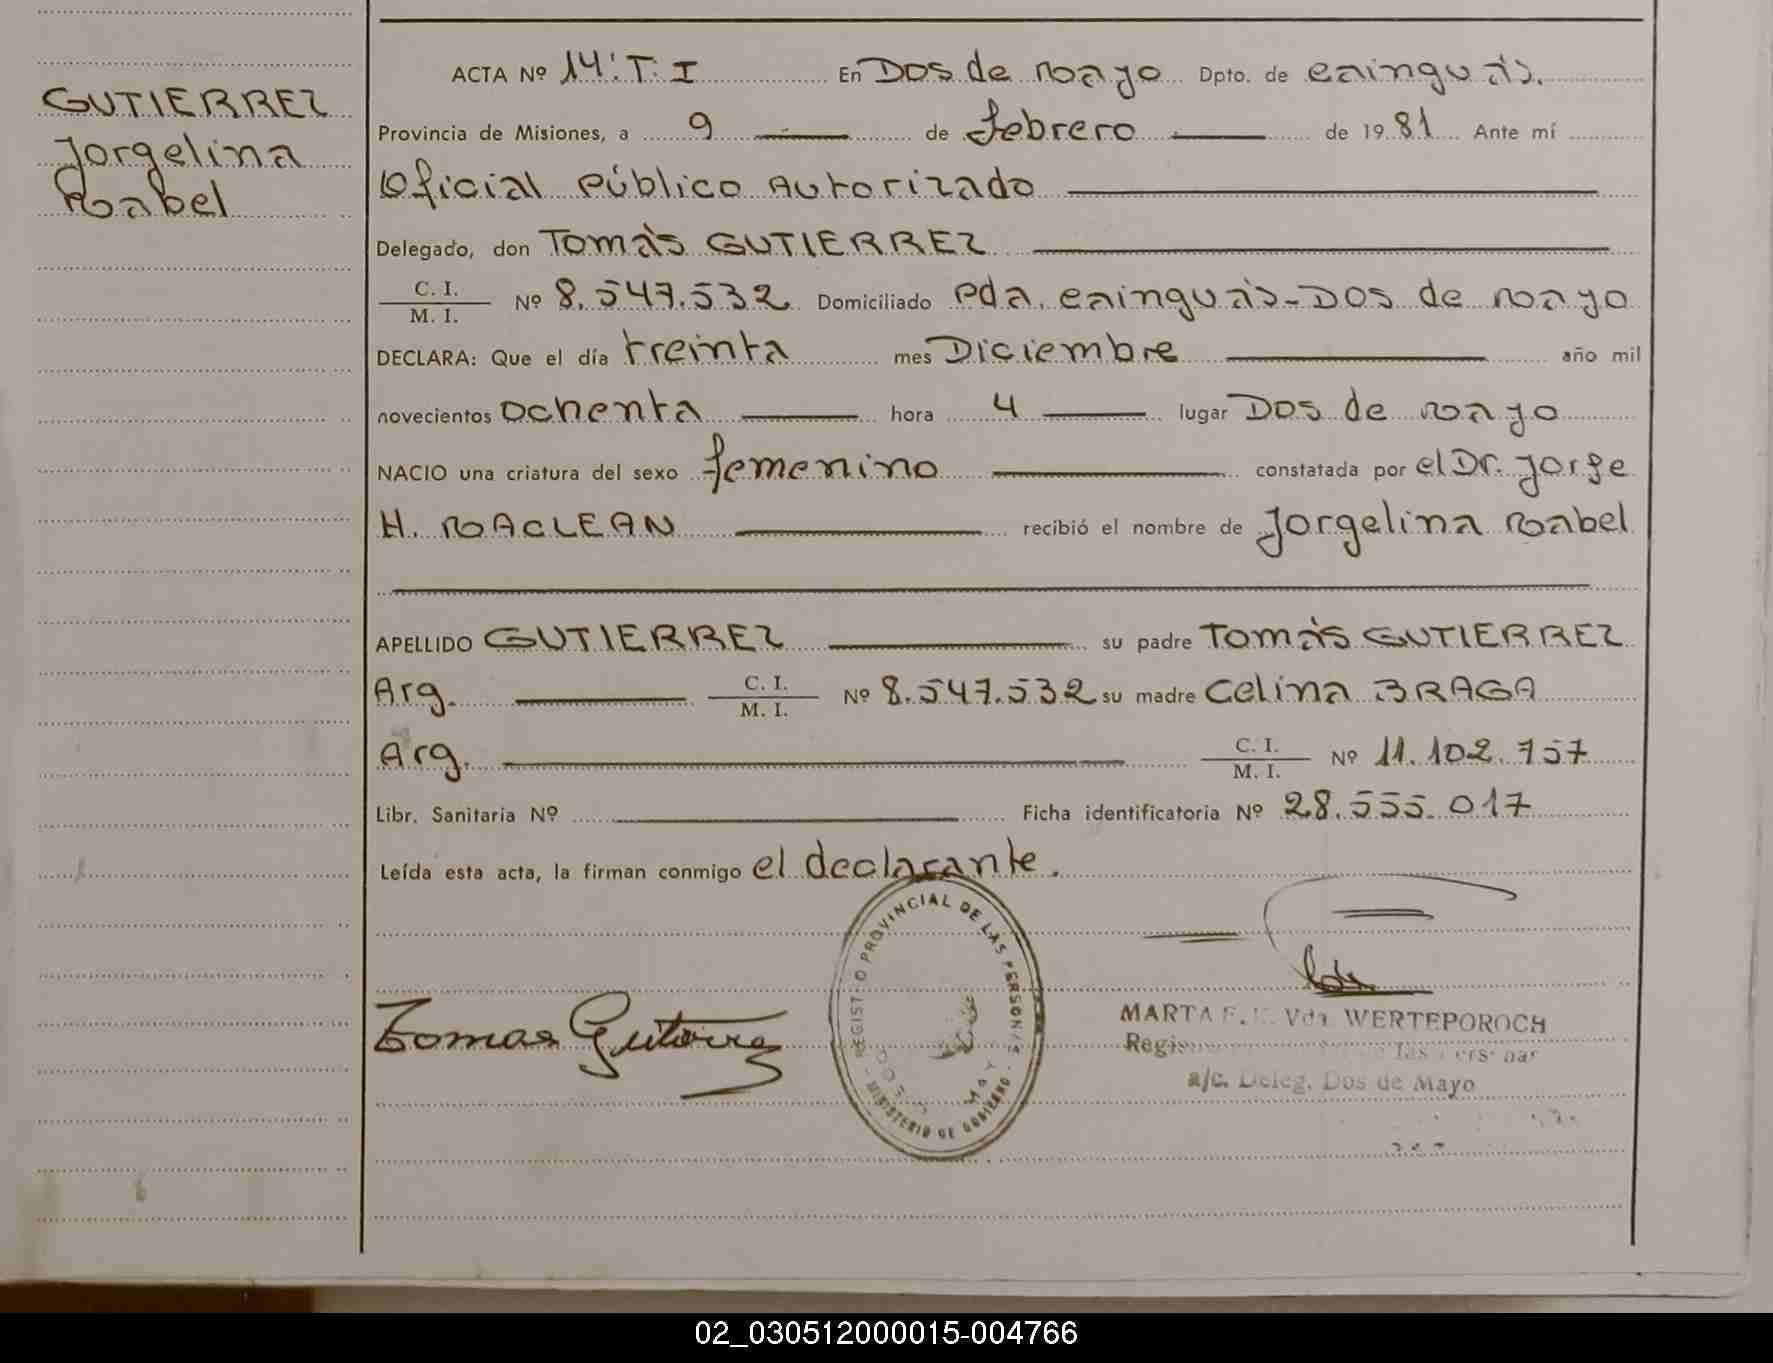 GUTIERREZ
Jorgelina
Mabel
ACTA Nº 14: T. I En Dos de Mayo Dpto. de Cainguás.
Provincia de Misiones, a 9 de febrero de 1981 Ante mí
Oficial Público Autorizado
Delegado, don Tomás GUTIERREZ
C. I. / M. I. Nº 8.547.532 Domiciliado Pda. Cainguás-Dos de Mayo
DECLARA: Que el día treinta mes Diciembre año mil
novecientos ochenta hora 4 lugar Dos de Mayo
NACIO una criatura del sexo femenino constatada por el Dr. Jorge
H. MACLEAN recibió el nombre de Jorgelina Mabel
APELLIDO GUTIERREZ su padre Tomás GUTIERREZ
Arg. C. I. / M. I. Nº 8.547.532 su madre Celina BRAGA
Arg. C. I. / M. I. Nº 11.102.757
Libr. Sanitaria Nº Ficha identificatoria Nº 28.555.017
Leída esta acta, la firman conmigo el declarante.
REGISTRO PROVINCIAL DE LAS PERSONAS
MINISTERIO DE GOBIERNO
Tomas Gutierrez
MARTA F. Vda. WERTEPOROCH
a/c. Deleg. Dos de Mayo
02_030512000015-004766